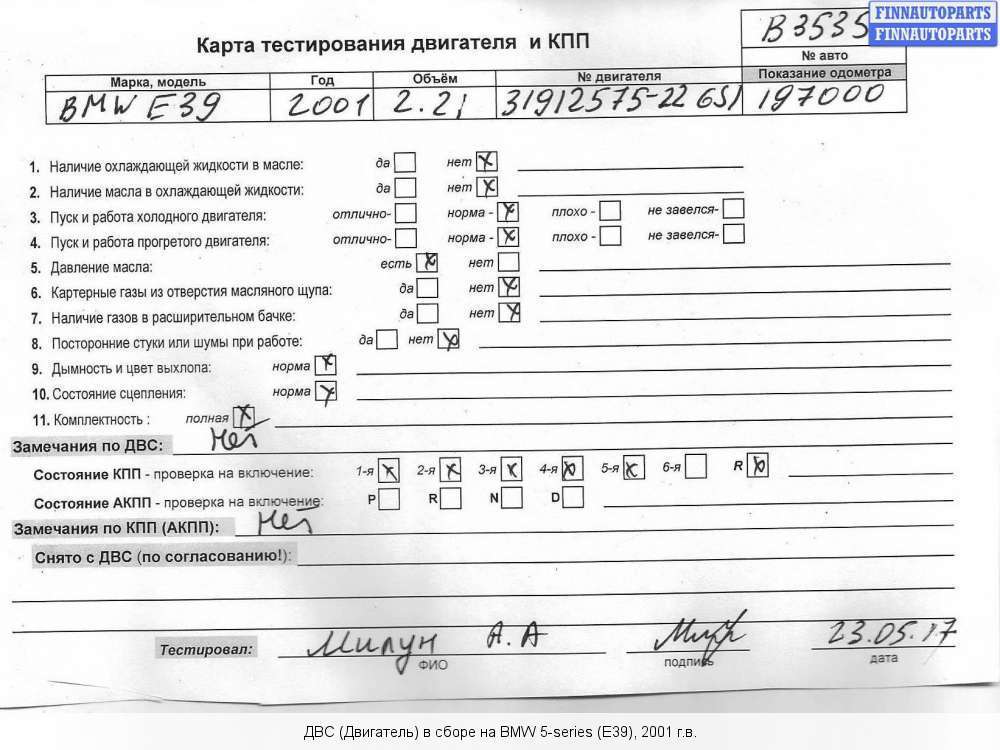 FINNAUTOPARTS
FINNAUTOPARTS
B3535
№ авто
Карта тестирования двигателя и КПП
Марка, модель Год Объём № двигателя Показание одометра
BMW E39 2001 2.2i 31912575-22 6S1 197000
1. Наличие охлаждающей жидкости в масле: да нет x
2. Наличие масла в охлаждающей жидкости: да нет x
3. Пуск и работа холодного двигателя: отлично- норма - x плохо - не завелся-
4. Пуск и работа прогретого двигателя: отлично- норма - x плохо - не завелся-
5. Давление масла: есть x нет
6. Картерные газы из отверстия масляного щупа: да нет x
7. Наличие газов в расширительном бачке: да нет x
8. Посторонние стуки или шумы при работе: да нет x
9. Дымность и цвет выхлопа: норма x
10. Состояние сцепления: норма x
11. Комплектность : полная x
Замечания по ДВС: Нет
Состояние КПП - проверка на включение: 1-я x 2-я x 3-я x 4-я x 5-я x 6-я R x
Состояние АКПП - проверка на включение: P R N D
Замечания по КПП (АКПП): Нет
Снято с ДВС (по согласованию!):
Тестировал: Милун А.А 23.05.17
ФИО подпись дата
ДВС (Двигатель) в сборе на BMW 5-series (E39), 2001 г.в.